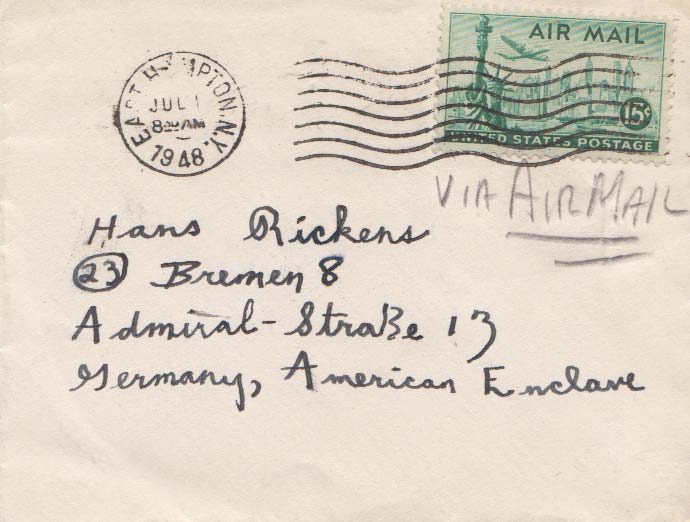 AIR MAIL
15¢
UNITED STATES POSTAGE
EAST HAMPTON, N.Y.
JUL 1
8:00 AM
1948
VIA AIR MAIL
Hans Rickens
23 Bremen 8
Admiral-Straße 13
Germany, American Enclave